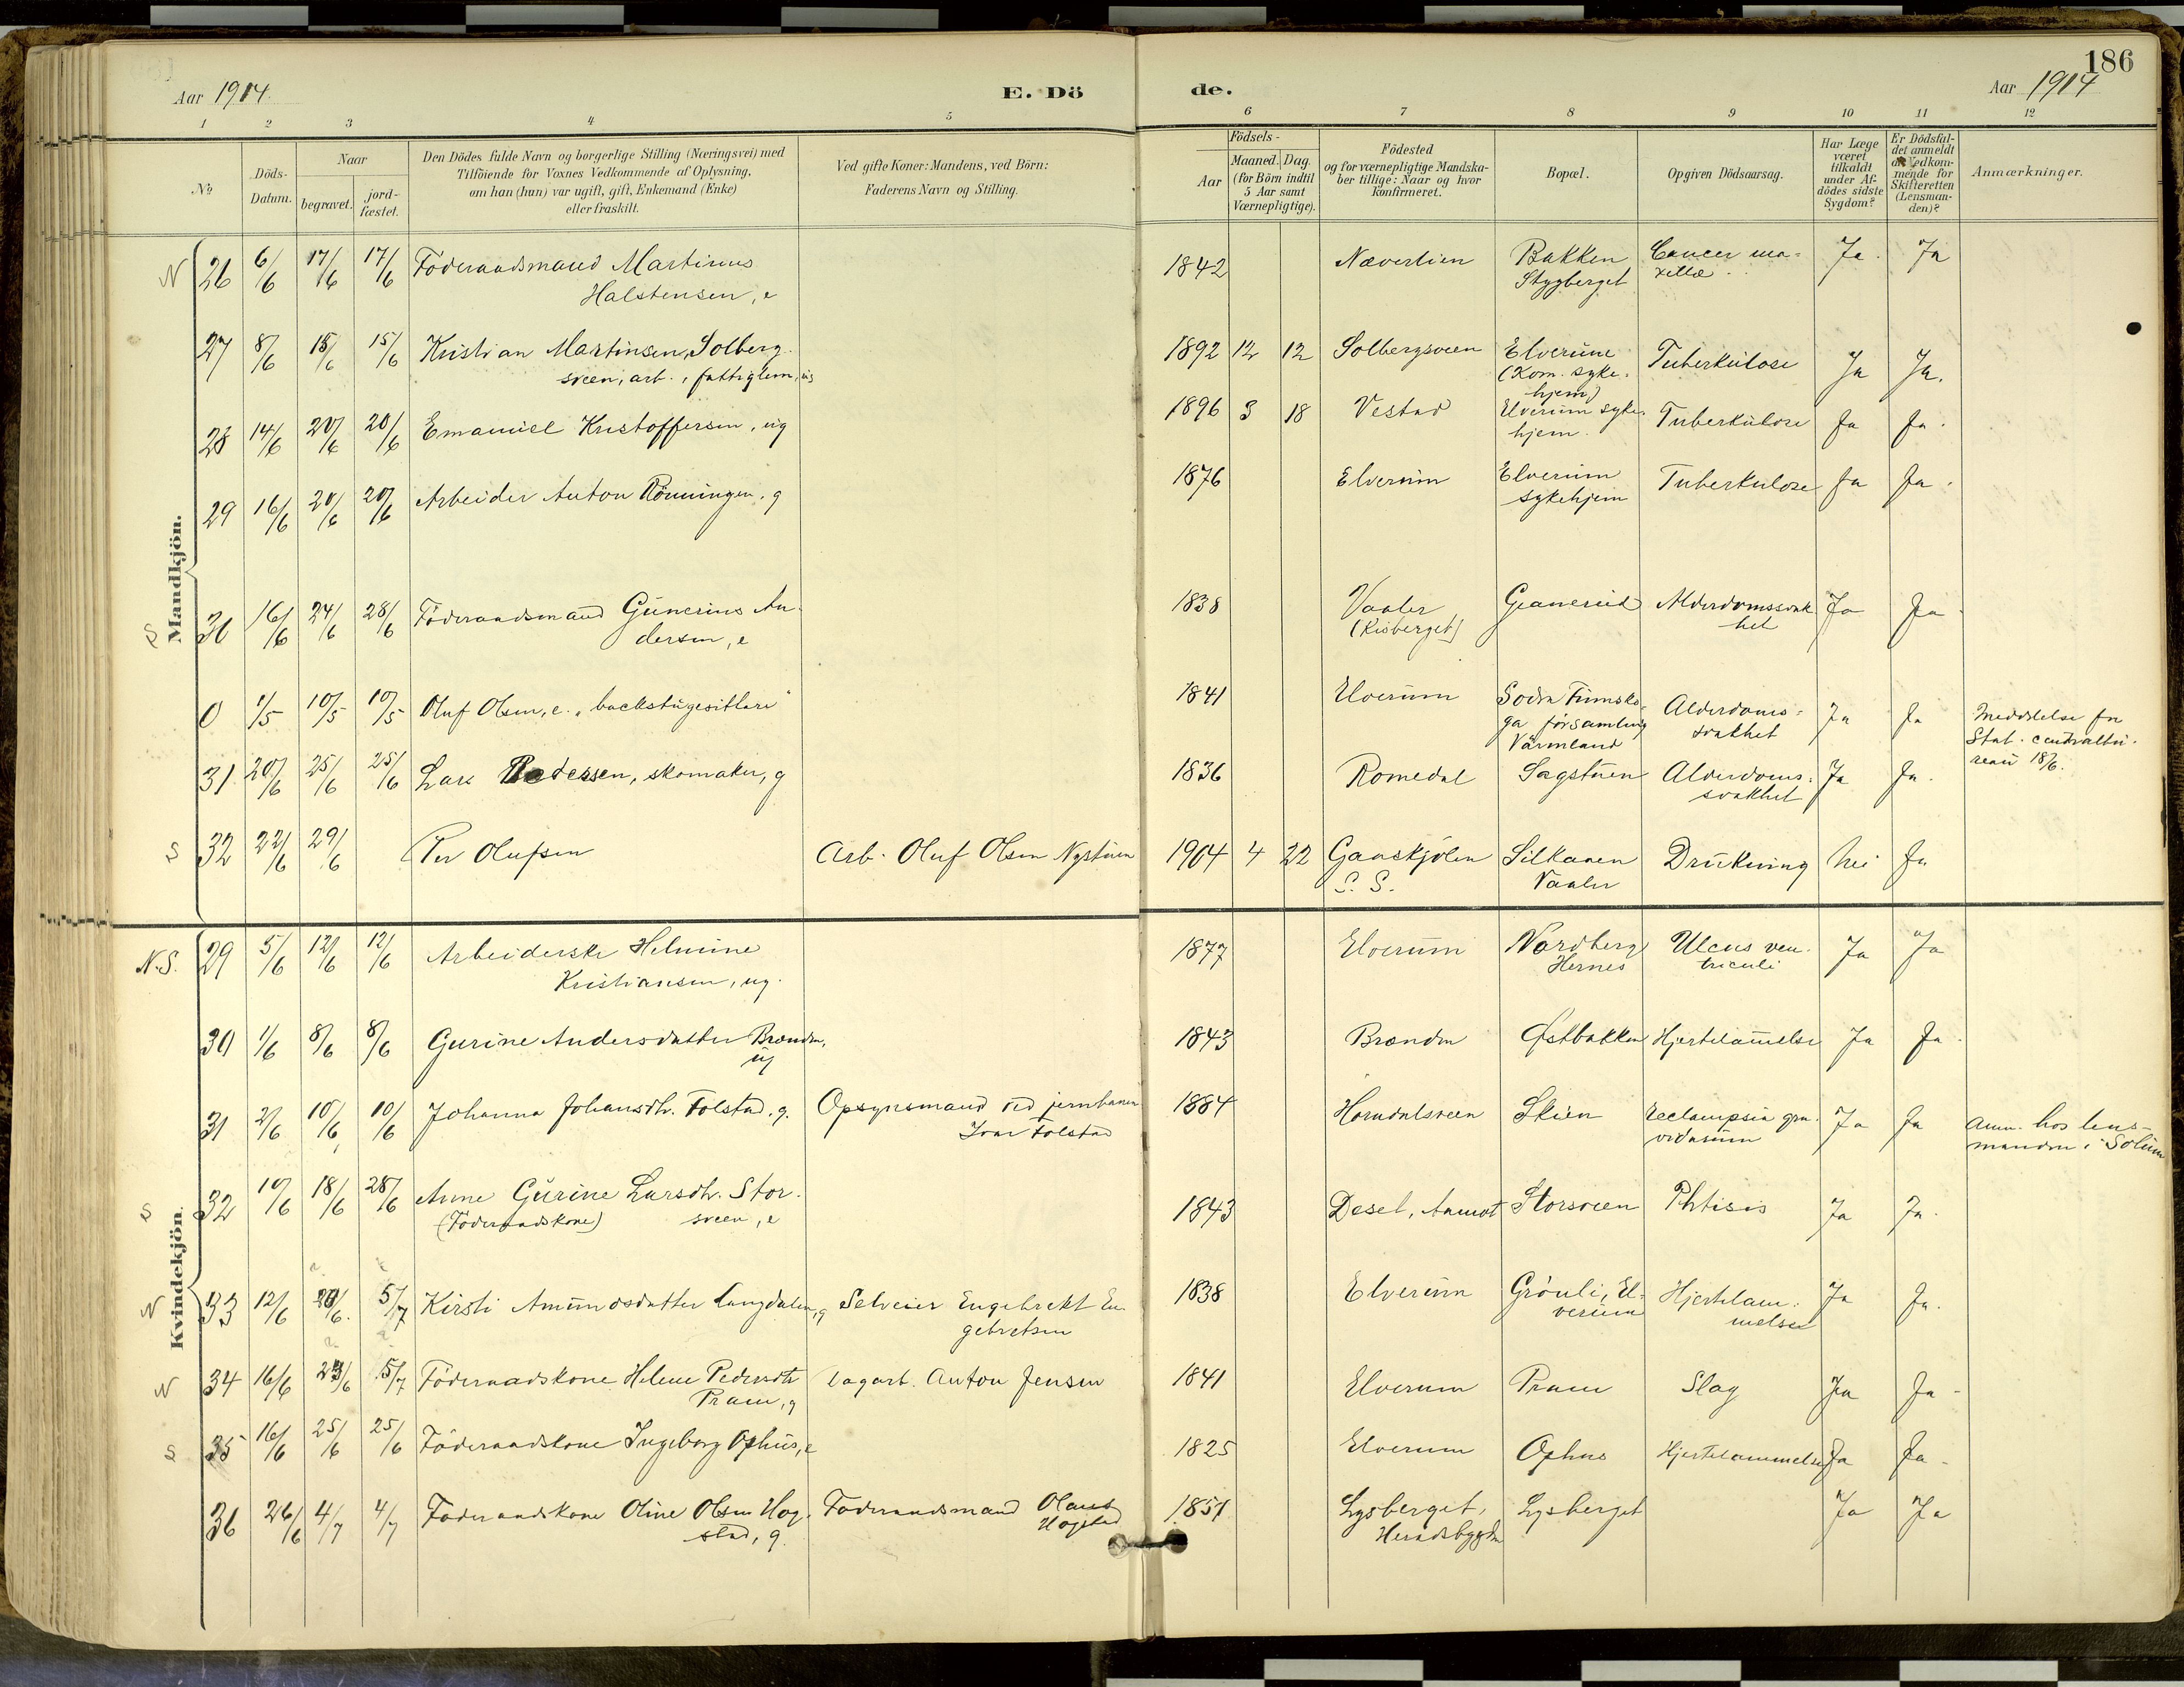 186
Aar 1914.
E. Dö
de.
Aar 1914
1 2 3 4 5 6 7 8 9 10 11 12
No
Döds-
Datum.
Naar
begravet.
jord-
fæstet.
Den Dödes fulde Navn og borgerlige Stilling (Næringsvei) med
Tilföiende for Voxnes Vedkommende af Oplysning,
om han (hun) var ugift, gift, Enkemand (Enke)
eller fraskilt.
Ved gifte Koner: Mandens, ved Börn:
Faderens Navn og Stilling.
Födsels-
Aar
Maaned. Dag.
(for Börn indtil
5 Aar samt
Værnepligtige).
Födested
og for værnepligtige Mandska-
ber tillige: Naar og hvor
konfirmeret.
Bopæl.
Opgiven Dödsaarsag.
Har Læge
været
tilkaldt
under Af-
dödes sidste
Sygdom?
Er Dödsfal-
det anmeldt
af Vedkom-
mende for
Skifteretten
(Lensman-
den)?
Anmærkninger.
Mandkjön.
N 26 6/6 17/6 17/6 Föderaadsmand Martinus
Halstensen, e
1842 Næverlien Bakken
Stygberget
Cancer ma-
xillæ
Ja. Ja
27 8/6 15/6 15/6 Kristian Martinsen, Solberg-
sveen, arb., fattiglem, ug
1892 12 12 Solbergsveen Elverum
(Kom. syke-
hjem)
Tuberkulose Ja Ja.
28 14/6 20/6 20/6 Emanuel Kristoffersen, ug
1896 3 18 Vestad Elverum syke-
hjem.
Tuberkulose Ja Ja.
29 16/6 20/6 20/6 Arbeider Anton Rönningen, g
1876 Elverum Elverum
sykehjem
Tuberkulose Ja Ja.
S 30 16/6 24/6 28/6 Föderaadsmand Gunerius An-
dersen, e
1838 Vaaler
(Risberget)
Graneried Alderdomssvak
het
Ja Ja
0 1/5 10/5 10/5 Oluf Olsen, e. „backstugesittare"
1841 Elverum Södra Finnsko-
ga församling
Värmland
Alderdoms-
svakhet
Ja Ja Meddelelse fra
Stat. centralbu-
reau 18/6.
31 20/6 25/6 25/6 Lars Pedersen, skomaker, g
1836 Romedal Sagstuen Alderdoms-
svakhet
Ja Ja.
S 32 22/6 29/6 Per Olufsen Arb. Oluf Olsen Nystuen
1904 4 22 Ganskjölen
S. S.
Silkaaen
Vaaler
Drukning Nei Ja
Kvindekjön.
N.S. 29 5/6 12/6 12/6 Arbeiderske Helmine
Kristiansen, ug.
1877 Elverum Nordberg
Hernes
Ulcus ven-
triculi
Ja Ja
30 1/6 8/6 8/6 Gurine Andersdatter Brænden,
ug
1843 Brænden Østbakken Hjertelammelse Ja Ja.
31 2/6 10/6 10/6 Johanna Johansdtr. Tolstad, g. Opsynsmand ved jernbanen
Ivar Tolstad
1884 Horndalsveen Skien Eclampsia gra-
vidarum
Ja Ja Anm. hos lens-
manden i Solum
S 32 10/6 18/6 28/6 Anne Gurine Larsdtr. Stor-
(Föderaadskone) sveen, e
1843 Desel, Aamot Storsveen Phtisis Ja Ja.
N 33 12/6 20/6. 5/7 Kirsti Amundsdatter Langdalen, g Selveier Engebrekt En-
gebretsen
1838 Elverum Grönli, El-
verum
Hjertelam-
melse
Ja Ja.
N 34 16/6 23/6 5/7 Föderaadskone Helene Pedersdtr
Pram, g
Dagarb. Anton Jensen
1841 Elverum Pram Slag Ja Ja
S 35 16/6 25/6 25/6 Föderaadskone Ingeborg Ophus, e
1825 Elverum Ophus Hjertelammelse Ja Ja
36 26/6 4/7 4/7 Föderaadskone Oline Olsen Hog-
stad, g.
Föderaadsmand Olaus
Hogstad
1851 Lysberget,
Heradsbygden
Lysberget Ja Ja